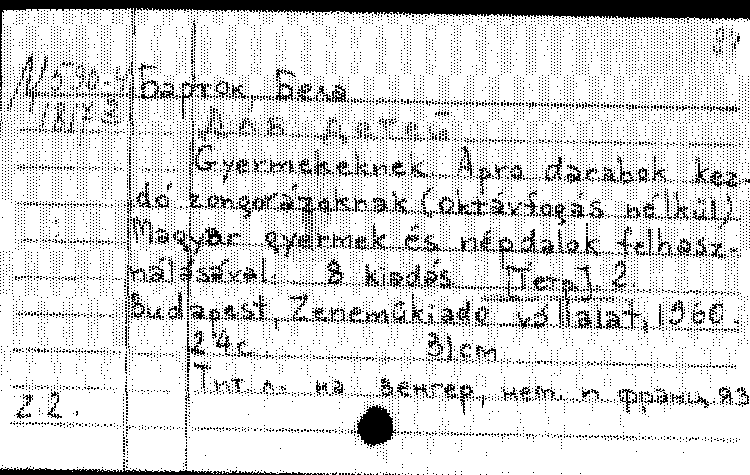 Барток Бела
Для детей
Gyermekeknek Apro darabok kez-
dó zongorázoknak (oktávfogás nélkül)
Magyar gyermek és népdalok felhasz-
nálásával. 8 kiadás [Тетр] 2
Budapest, Zeneműkiadó vállalat, 1960.
24 с 31 cm
Тит л. на венгер, нем и франц яз
22.